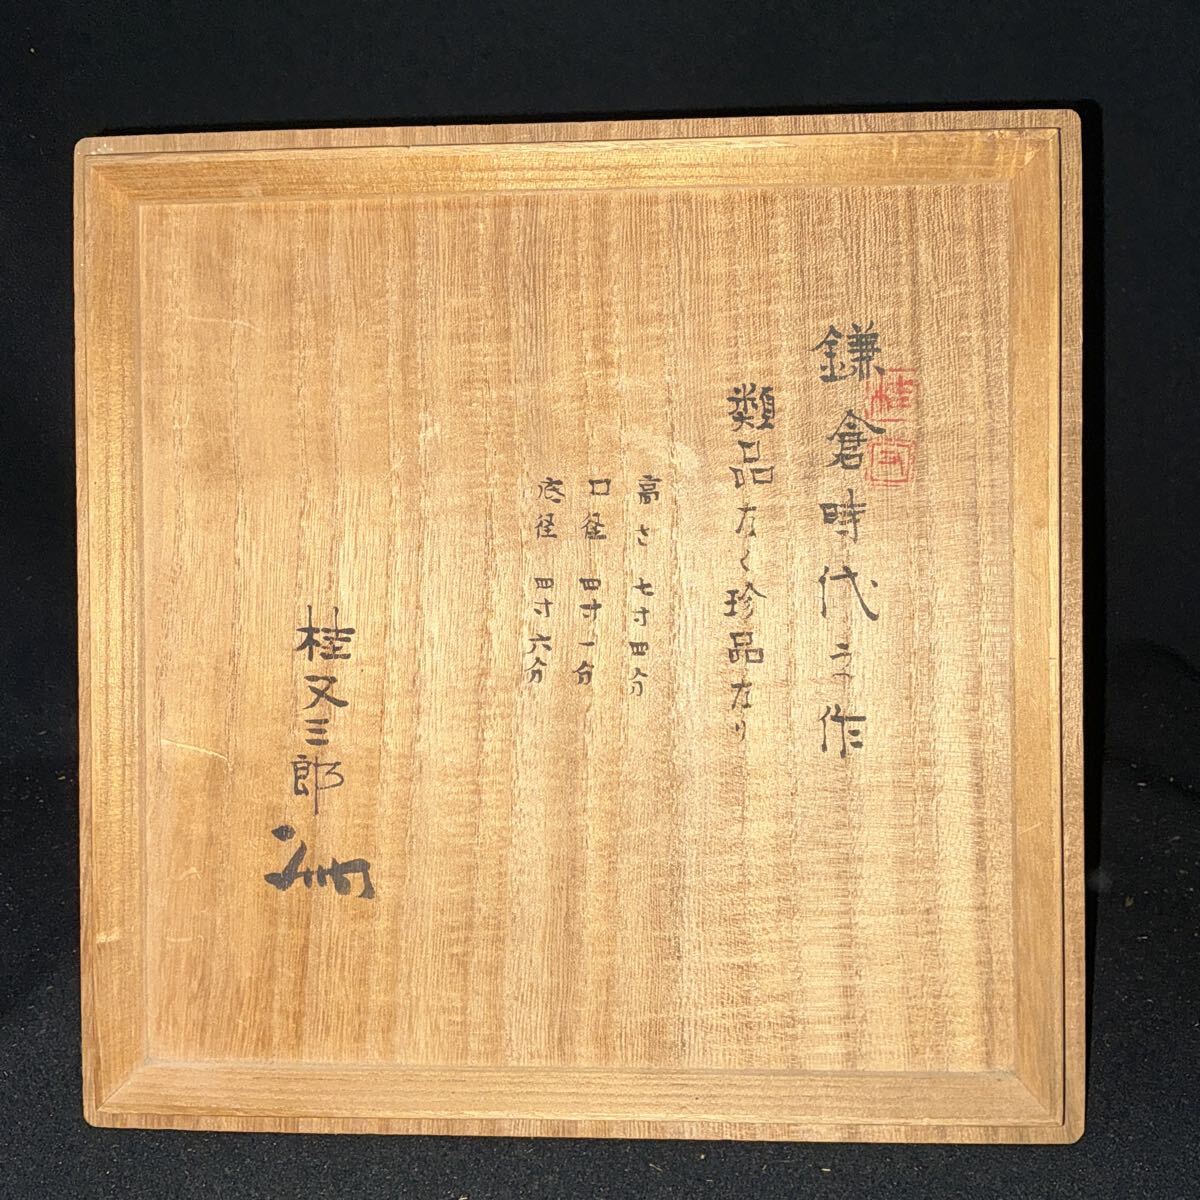 鎌倉時代之作
類品なく珍品なり
高さ 七寸四分
口径 四寸一分
底径 四寸六分
桂又三郎